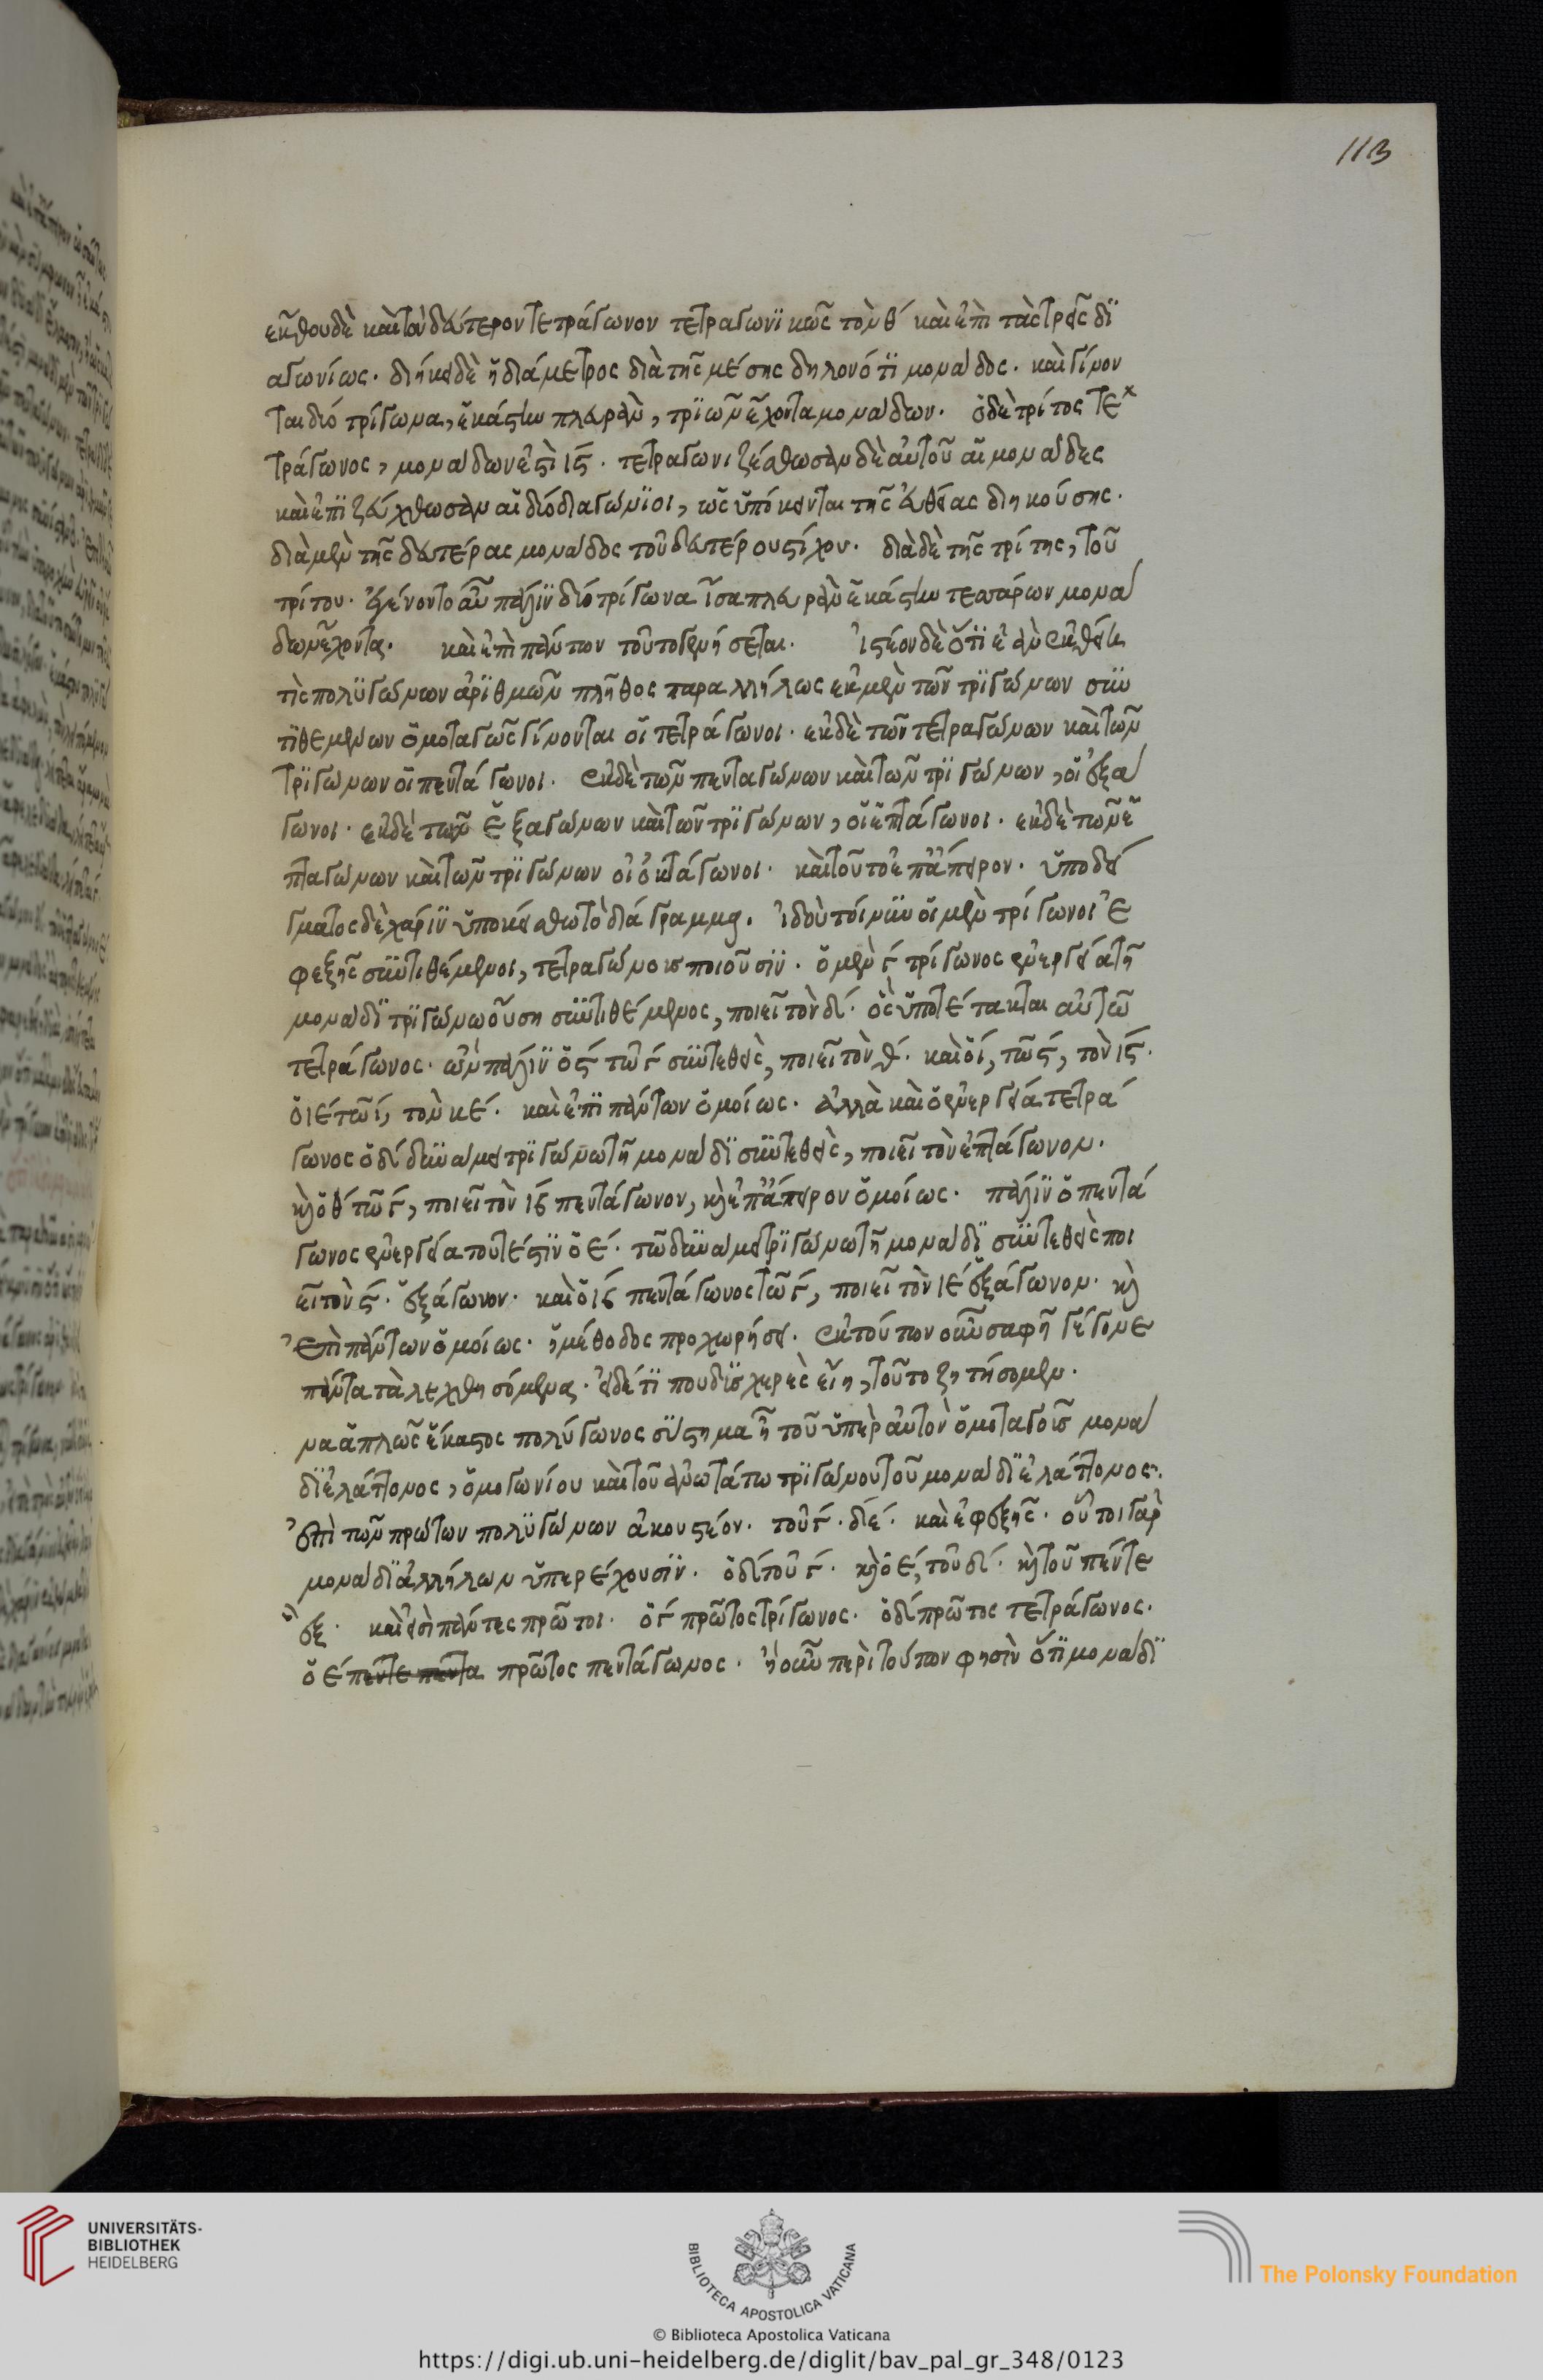 113
ἐκθου δὲ καὶ τὸν δεύτερον τετράγωνον τετραγωνικῶς τὸν θ´ καὶ ἐπὶ τὰς τρεῖς δι
αγωνίως. διήκει δὲ ἡ διάμετρος διὰ τῆς μέσης δηλονότι μονάδος. καὶ γίνον
ται δύο τρίγωνα, ἑκάστην πλευρὰν, τριῶν ἔχοντα μονάδων. ὁ δὲ τρίτος τε
τράγωνος, μονάδων ἐστὶ ις. τετραγωνιζέσθωσαν δὲ αὐτοῦ αἱ μονάδες
καὶ ἐπιζεύχθωσαν αἱ δύο διαγώνιοι, ὡς ὑπόκεινται τῆς εὐθείας διηκούσης.
διὰ μὲν τῆς δευτέρας μονάδος τοῦ δευτέρου στίχου. διὰ δὲ τῆς τρίτης, τοῦ
τρίτου. ἐγένοντο οὖν πάλιν δύο τρίγωνα ἴσα πλευρὰν ἑκάστην τεσσάρων μονά
δων ἔχοντα. καὶ ἐπὶ πάντων τοῦτο γενήσεται. ἰστέον δὲ ὅτι ἐὰν ἐκθεῖτε
τὶς πολυγώνων ἀριθμῶν πλῆθος παραλλήλως ἐκ μὲν τῶν τριγώνων συν
τιθεμένων ὁμοταγῶς γίνονται οἱ τετράγωνοι. ἐκ δὲ τῶν τετραγώνων καὶ τῶν
τριγώνων οἱ πεντάγωνοι. ἐκ δὲ τῶν πενταγώνων καὶ τῶν τριγώνων, οἱ ἑξά
γωνοι. ἐκ δὲ τῶν ἑξαγώνων καὶ τῶν τριγώνων, οἱ ἑπτάγωνοι. ἐκ δὲ τῶν ἑ
πταγώνων καὶ τῶν τριγώνων οἱ ὀκτάγωνοι. καὶ τοῦτο ἐπ' ἄπειρον. ὑποδεί
γματος δὲ χάριν ὑποκείσθω τὸ διάγραμμα. ἰδοὺ τοίνυν οἱ μὲν τρίγωνοι ἐ
φεξῆς συντιθέμενοι, τετραγώνους ποιοῦσιν. ὁ μὲν γ´ τρίγωνος ἐνεργείᾳ τῇ
μονάδι τριγώνῳ οὔσῃ συντιθέμενος, ποιεῖ τὸν δ´. ὃς ὑποτέτακται αὐτῶ
τετράγωνος. ὢν πάλιν ὁ ς´ τῶ γ´ συντεθεὶς, ποιεῖ τὸν θ´. καὶ ὁ ί, τῶ ς´, τὸν ις´.
ὁ ιε´ τῶ ί, τὸν κε´. καὶ ἐπὶ πάντων ὁμοίως. ἀλλὰ καὶ ὁ ἐνεργείᾳ τετρά
γωνος ὁ δ´ δυνάμει τριγώνῳ τῇ μονάδι συντεθεὶς, ποιεῖ τὸν ἑπτάγωνον.
καὶ ὁ θ´ τῶ γ´, ποιεῖ τὸν ιβ πεντάγωνον, καὶ ἐπ' ἄπειρον ὁμοίως. πάλιν ὁ πεντά
γωνος ἐνεργείᾳ τουτέστιν ὁ ε´. τῶ δυνάμει τριγώνῳ τῇ μονάδι συντεθεὶς ποι
εῖ τὸν ς´. ἑξάγωνον. καὶ ὁ ιβ πεντάγωνος τῶ γ´, ποιεῖ τὸν ιε´ ἑξάγωνον. καὶ
ἐπὶ πάντων ὁμοίως. ἡ μέθοδος προχωρήσει. ἐκ τούτων οὖν σαφῆ γέγονε
πάντα τὰ λεχθησόμενα. εἰ δέ τι που δυσχερὲς εἴη, τοῦτο ζητήσομεν.
μα ἁπλῶς ἕκαστος πολύγωνος σύστημα ἢ τοῦ ὑπὲρ αὐτὸν ὁμοταγοῦς μονά
δι ἐλάττονος, ὁμογωνίου καὶ τοῦ ἀνωτάτω τριγώνου τοῦ μονάδι ἐλάττονος.
ἐπὶ τῶν πρώτων πολυγώνων ἀκουστέον. τοῦ γ´. δ´ ε´. καὶ ἐφεξῆς. οὗτοι γὰρ
μονάδι ἀλλήλων ὑπερέχουσιν. ὁ δ´ τοῦ γ´. καὶ ὁ ε´, τοῦ δ´. καὶ τοῦ πέντε
ὁ ἓξ. καὶ εἰσὶ πάντες πρῶτοι. ὁ γ´ πρῶτος τρίγωνος. ὁ δ´ πρῶτος τετράγωνος.
ὁ ε´ πέντε πέντα πρῶτος πεντάγωνος. ἢ οὖν περὶ τούτων φησὶν ὅτι μονάδι
UNIVERSITÄTS-
BIBLIOTHEK
HEIDELBERG
BIBLIOTECA APOSTOLICA VATICANA
The Polonsky Foundation
© Biblioteca Apostolica Vaticana
https://digi.ub.uni-heidelberg.de/diglit/bav_pal_gr_348/0123